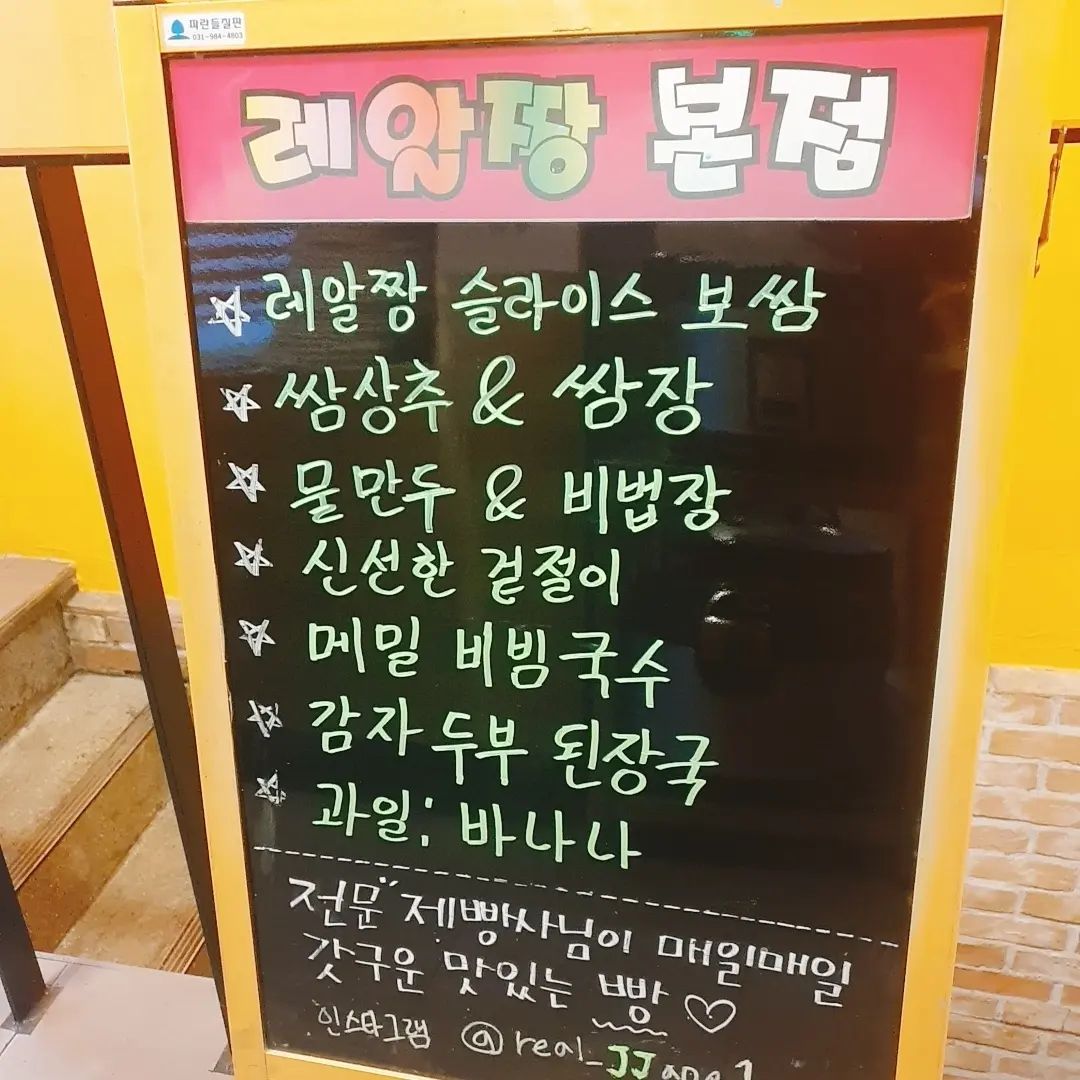 파란들칠판
031-984-4803
레알짱 본점
☆ 레알짱 슬라이스 보쌈
☆ 쌈상추 & 쌈장
☆ 물만두 & 비법장
☆ 신선한 겉절이
☆ 메밀 비빔국수
☆ 감자 두부 된장국
☆ 과일; 바나나
전문 제빵사님이 매일매일
갓구운 맛있는 빵 ♡
인스타그램 @real_